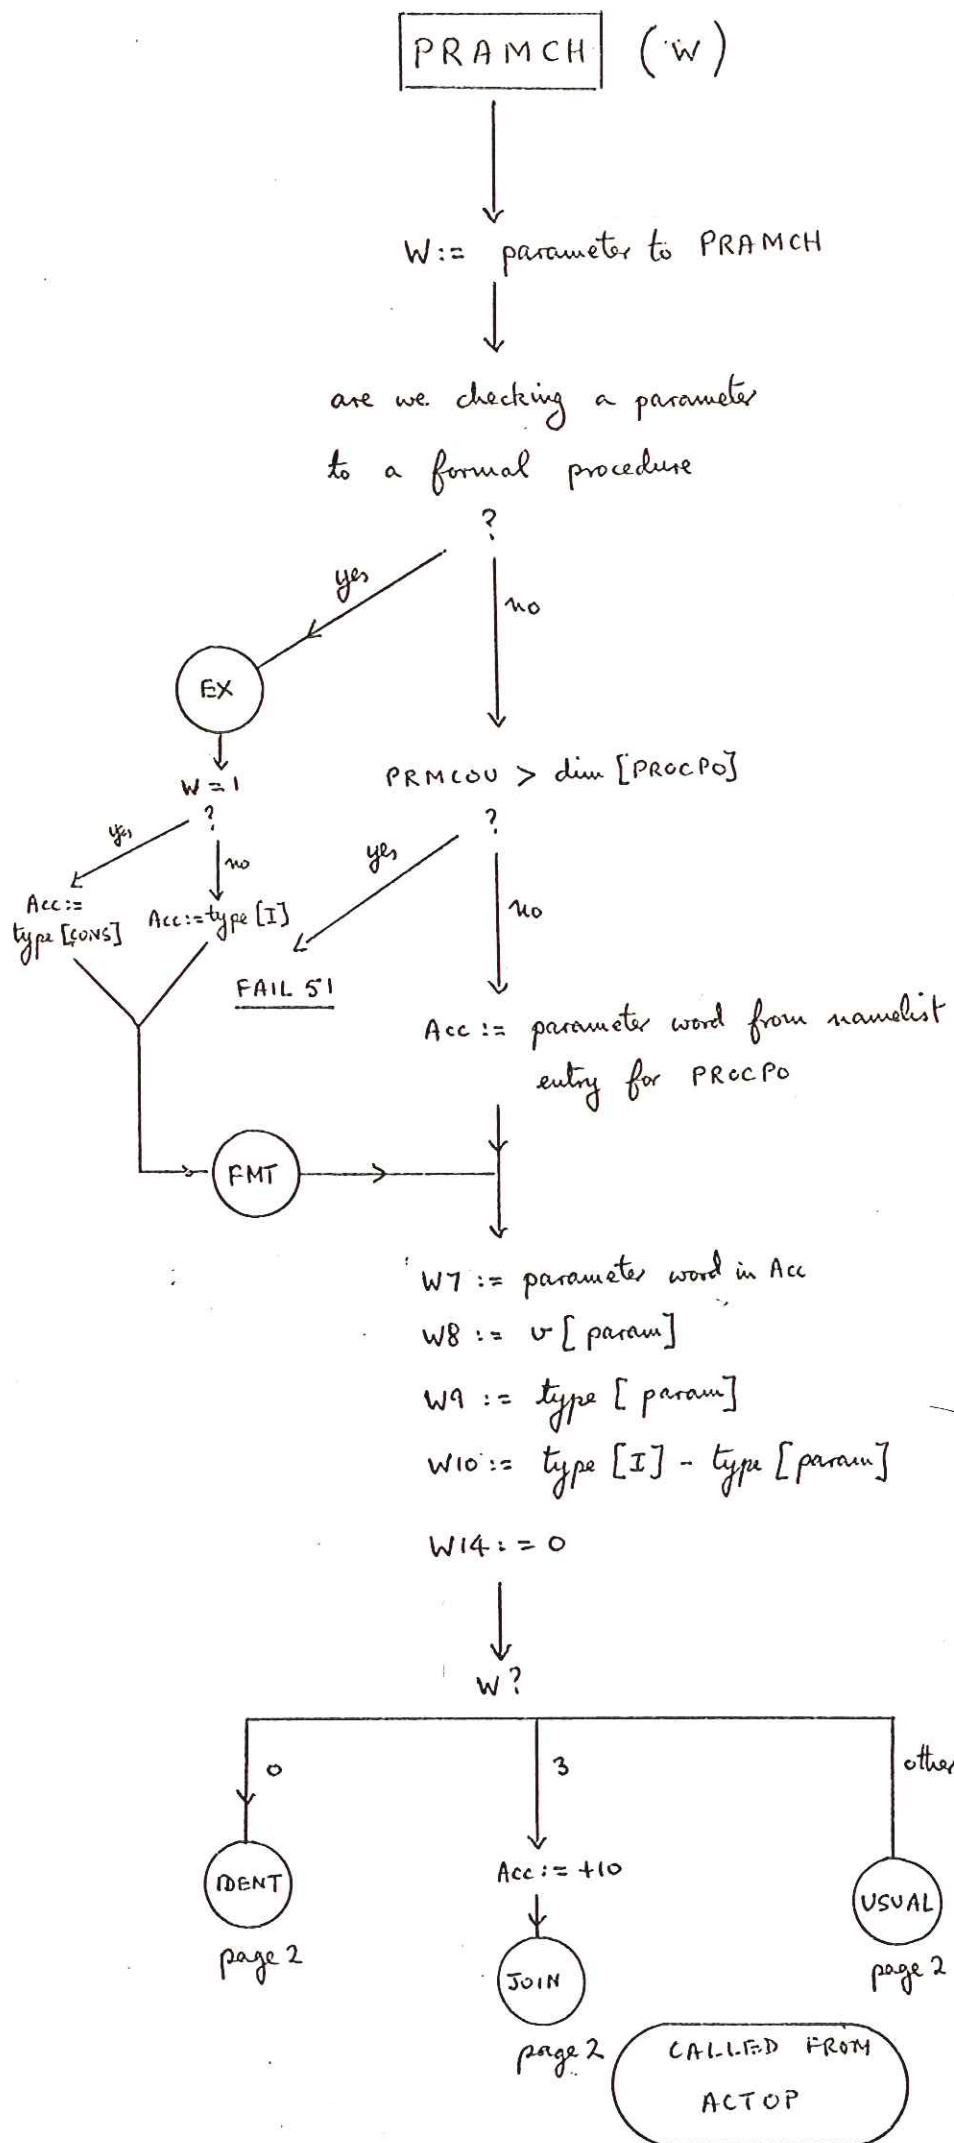 PRAMCH (W)
W := parameter to PRAMCH
are we checking a parameter
to a formal procedure
?
yes
no
EX
W = 1
?
yes
no
Acc :=
type [CONS]
Acc := type [I]
PRMCOU > dim [PROCPO]
?
yes
no
FAIL 51
Acc := parameter word from namelist
entry for PROCPO
FMT
W7 := parameter word in Acc
W8 := v [param]
W9 := type [param]
W10 := type [I] - type [param]
W14 := 0
W ?
0
3
other
IDENT
page 2
Acc := +10
JOIN
page 2
USUAL
page 2
CALLED FROM
ACTOP